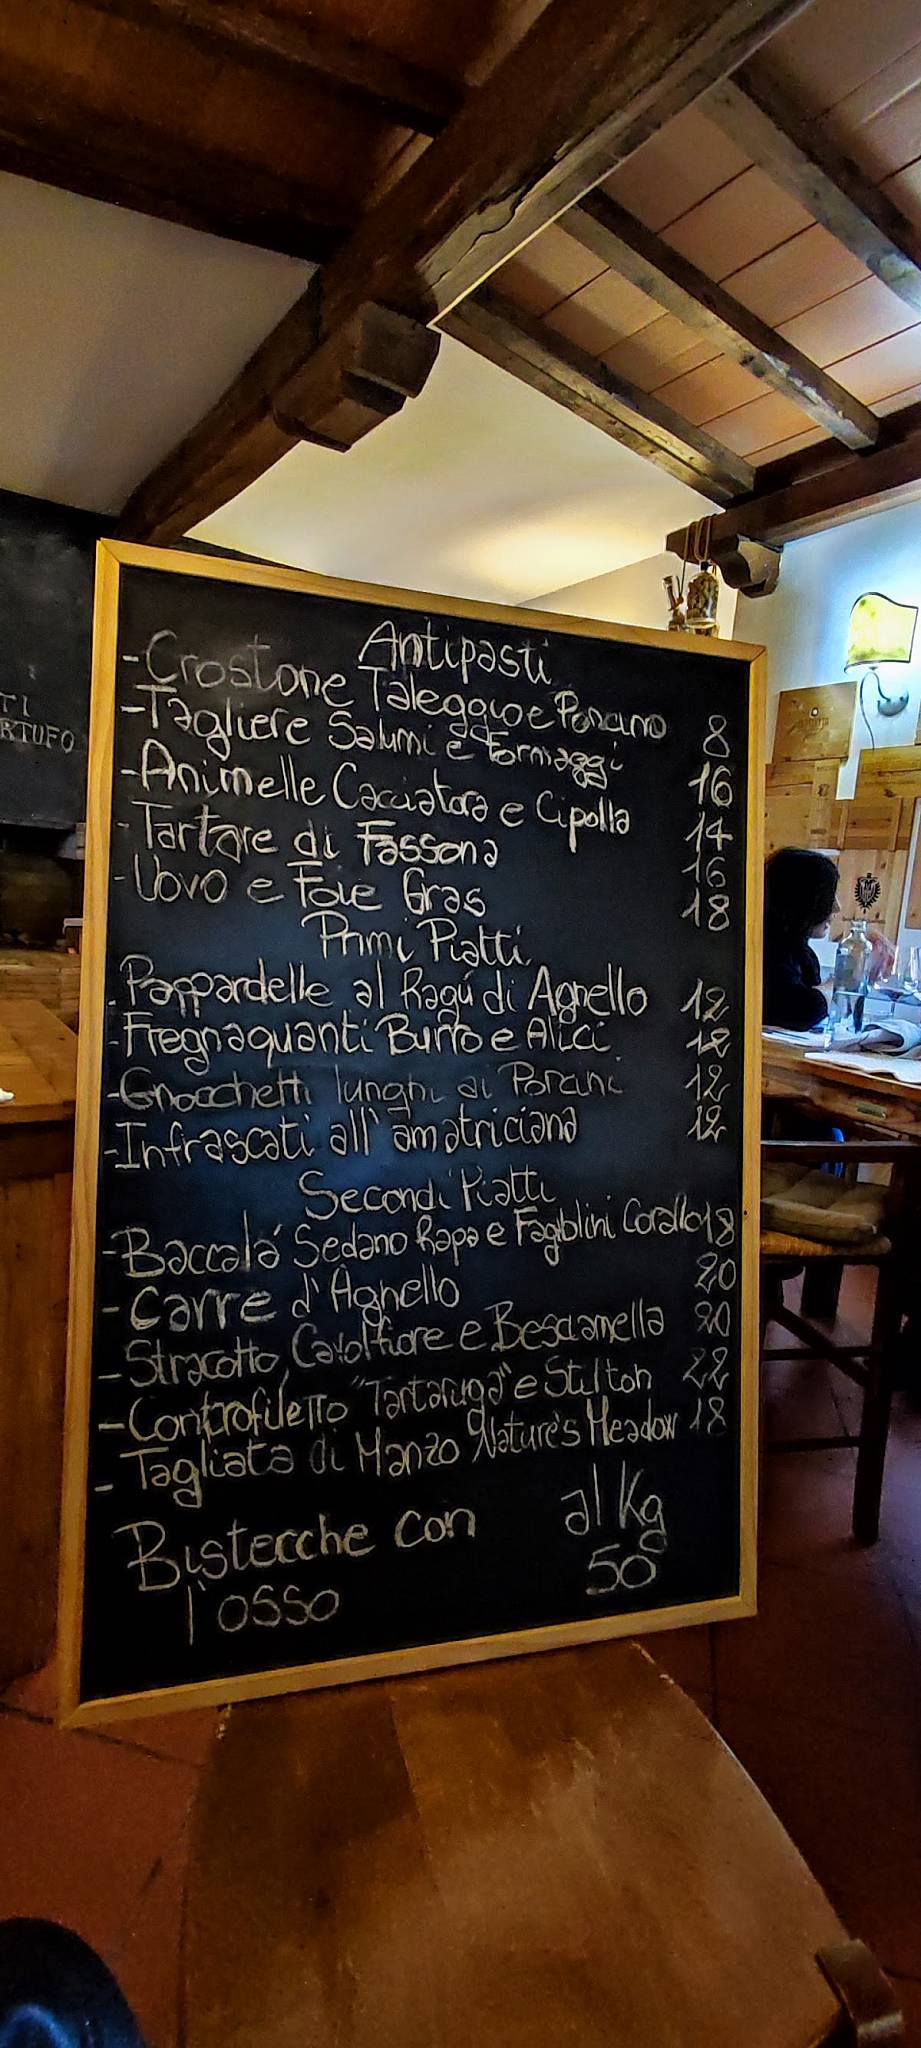 TI
RTUFO
Antipasti
- Crostone Taleggio e Porcino 8
- Tagliere Salumi e Formaggi 16
- Animelle Cacciatora e Cipolla 14
- Tartare di Fassona 16
- Uovo e Foie Gras 18
Primi Piatti
- Pappardelle al Ragú di Agnello 12
- Fregnaquanti Burro e Alici 12
- Gnocchetti lunghi ai Porcini 12
- Infrascati all'amatriciana 12
Secondi Piatti
- Baccalá Sedano Rapa e Fagiolini Corallo 18
- Carre d'Agnello 20
- Stracotto, Cavolfiore e Besciamella 20
- Controfiletto "Tartaruga" e Stilton 22
- Tagliata di Manzo Nature's Meadow 18
Bistecche con al Kg
l'osso 50